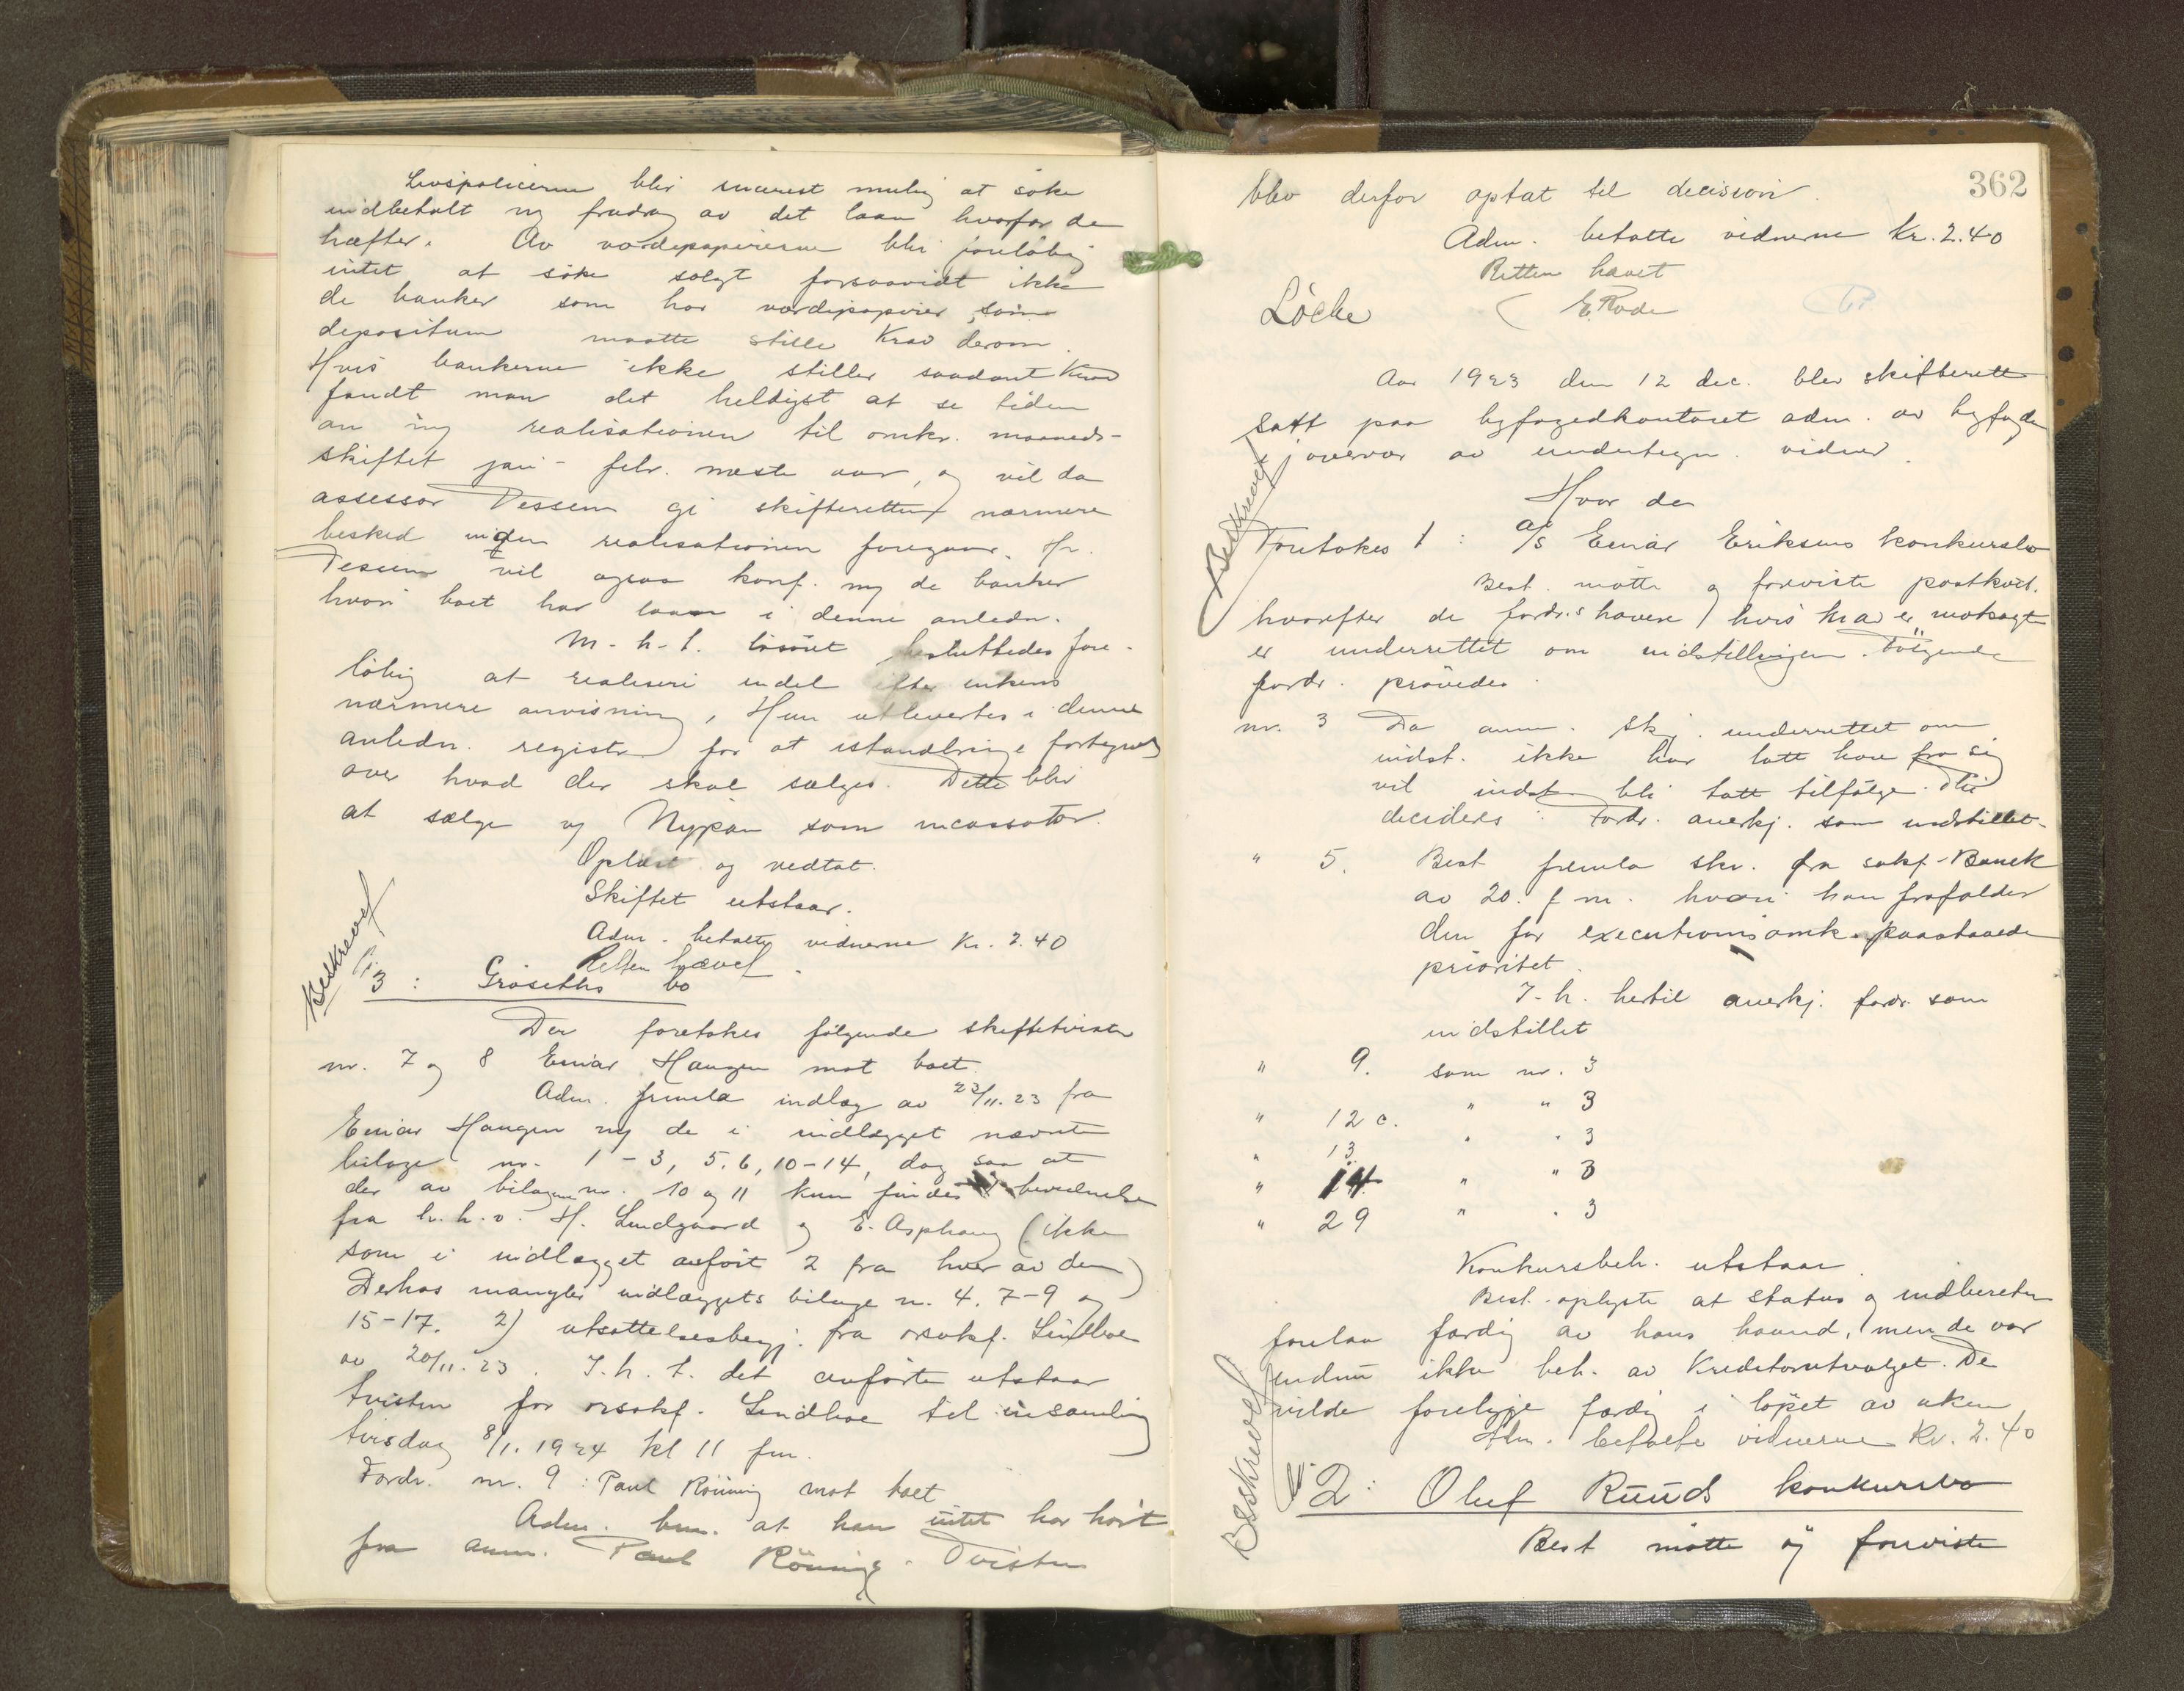 Livspolicerne blir snarest mulig at søke
indbetalt m/ fradrag av det laan hvorfor de
hæfter. Av værdipapirerne blir foreløbig
intet at søke solgt forsaavidt ikke
de banker som har værdipapirer som
depositum maatte stille krav derom.
Hvis bankerne ikke stiller saadant krav
fandt man det heldigst at se tiden
an m/ realisationen til omkr. maaneds-
skiftet jan - febr. næste aar, og vil da
assessor Dessem gi skifteretten nærmere
besked inden realisationen foregaar. Hr.
Dessem vil ogsaa konf. m/ de banker
hvori boet har laan i denne anledn.
M-h-t. løsøret besluttedes fore-
løbig at realisere endel efter enkens
nærmere anvisning, Hun utlevertes i denne
anledn. registr. for at istandbringe fortegnelse
over hvad der skal sælges. Dette blir
at sælge v/ Nypan som incassator.
Oplæst og vedtat.
Skiftet utstaar.
Adm. betalte vidnerne Kr. 2.40
Retten hævet.
Beskrevet
3: Grøseths bo
Der foretokes følgende skiftetvister
nr. 7 og 8 Einar Haugen mot boet.
Adm. fremla indlæg av 23/11.23 fra
Einar Haugen m/ de i indlægget nævnte
bilage nr. 1-3, 5.6, 10-14, dog saa at
der av bilagene nr. 10 og 11 kun findes bevidnelse
fra h.h.v. H. Lundgaard og E. Asphaug (ikke
som i indlægget anført 2 fra hver av dem)
Derhos mangler indlæggets bilage nr. 4. 7-9 og
15-17. 2) utsættelsesbegj. fra orsakf. Lindboe
av 20/11.23. I.h.t. det anførte utstaar
tvisten for orsakf. Lindboe til insamling
tirsdag 8/1. 1924 kl 11 fm.
Fordr. nr. 9: Paul Rönning mot boet
Adm. bem. at han intet har hørt
fra anm. Paul Rönning. Tvisten
362
blev derfor optat til decision.
Adm. betalte vidnerne Kr. 2.40
Retten hævet
E. Rode
Löcke
Aar 1923 den 12 dec. blev skifterett
satt paa byfogedkontoret adm. av byfogden
i overvær av undertegn. vidner.
Hvor da
Beskrevet
Foretokes 1: A/S Einar Eriksens konkursbo
Best. møtte og foreviste postkvit.
hvorefter de fordr.shavere hvis krav er motsagt
er underrettet om indstillingen. Følgende
fordr. prøvedes.
nr. 3 Da anm. skj. underrettet om
indst. ikke har latt høre fra sig
vil indst. bli tatt tilfølge. Der
decideres: Fordr. anerkj. som indstillet.
" 5. Best fremla skr. fra sakf. Banck
av 20. f.m. hvori han frafalder
den for executionsomk. paastaaede
prioritet.
I-h. hertil anerkj. fordr. som
indstillet
" 9. som nr. 3
" 12 c. " " 3
" 13. " " 3
" 14 " " 3
" 29 " " 3
Konkursbeh. utstaar.
Best. oplyste at status og indberetn
forelaa færdig av hans haand, men de var
endnu ikke beh. av kreditorutvalget. De
vilde foreligge færdig i løpet av uken
Adm. betalte vidnerne Kr. 2.40
Beskrevet
2: Oluf Ruuds konkursbo
Best møtte og foreviste